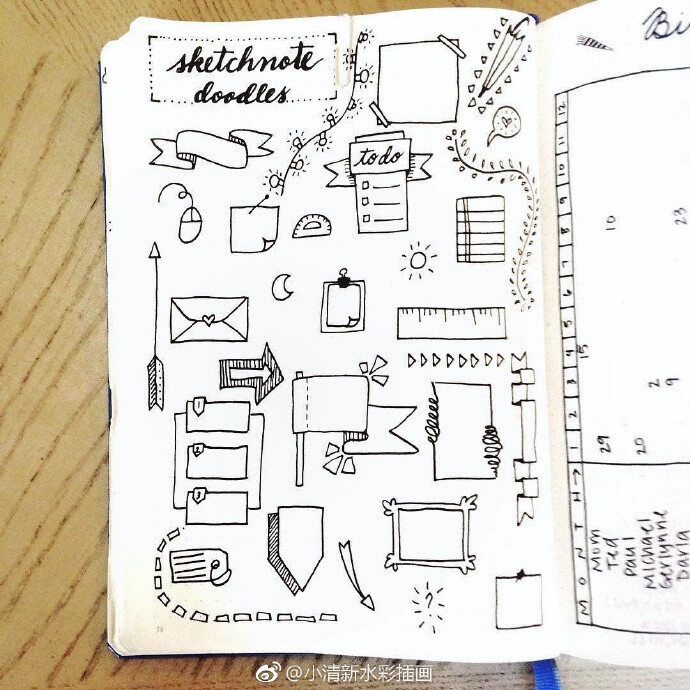 sketchnote
doodles
to do
1
2
3
?
Bi
MONTH → 1 2 3 4 5 6 7 8 9 10 11 12
15
Mom 29
Ted 10
Paul 20
Michael 2
Gerlynne 9
Darla 23
@小清新水彩插画